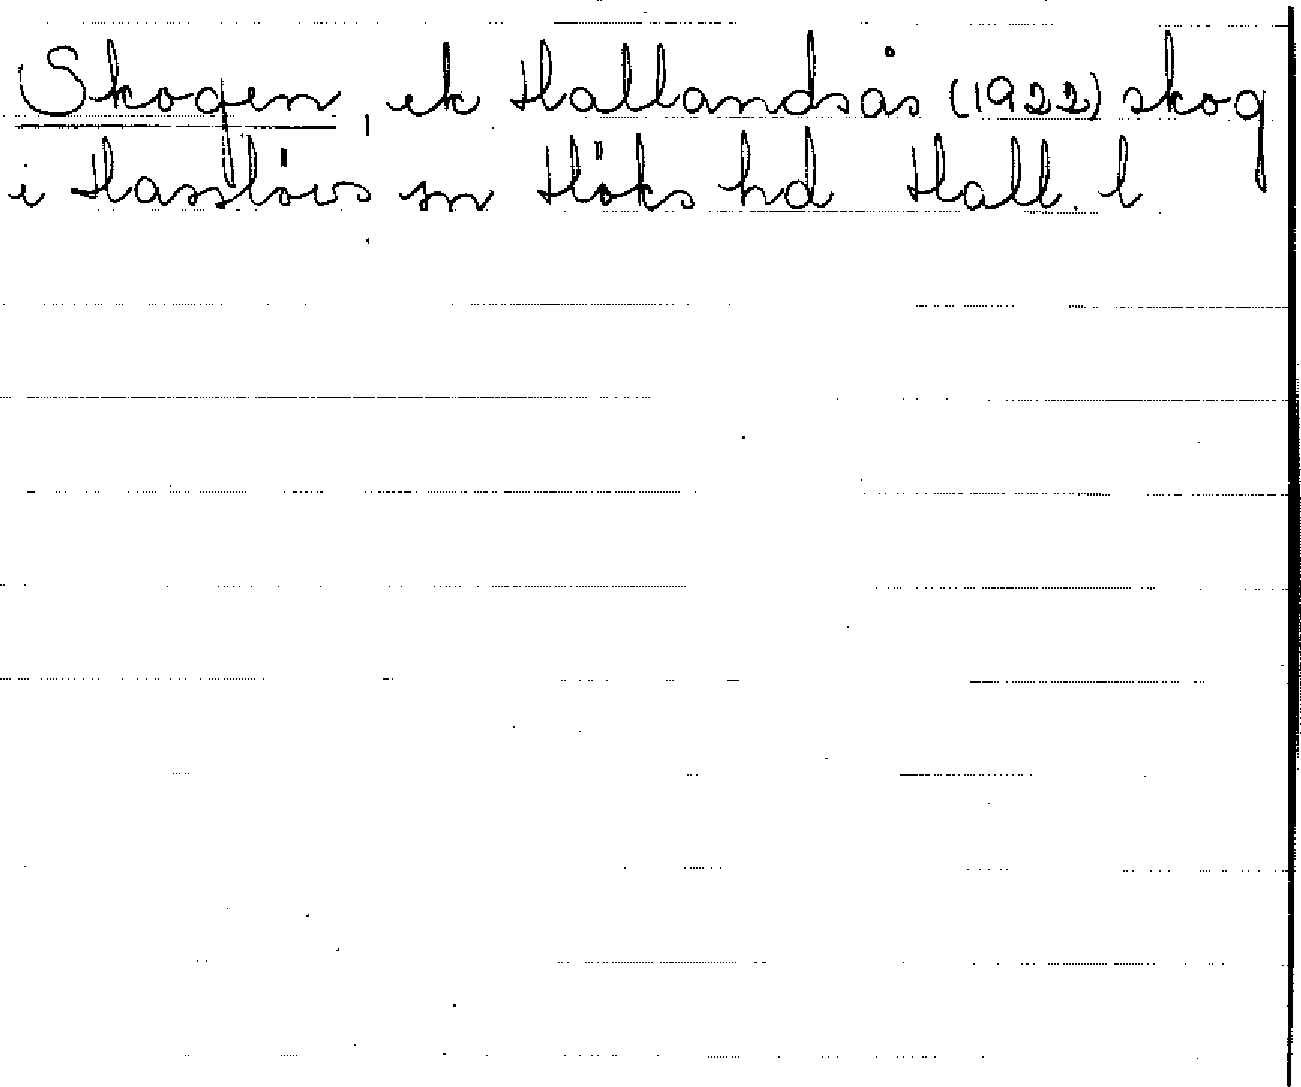 Skogen, ek Hallandsås (1922) skog
i Hasslövs sn Höks hd Hall. l